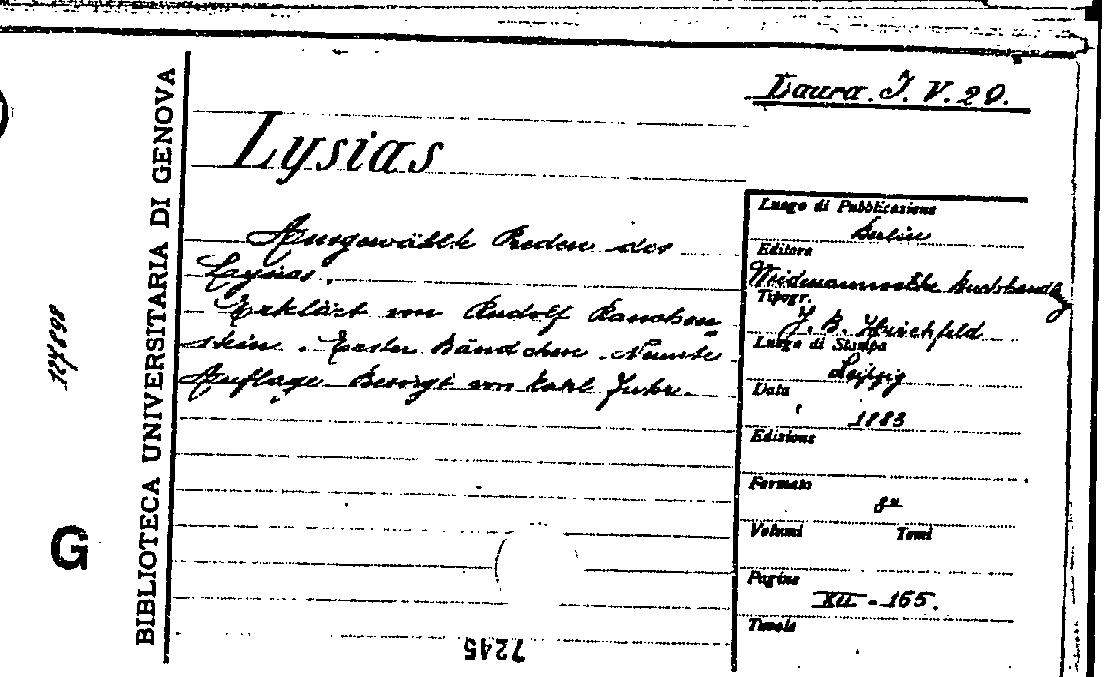 Laura. I. V. 20.
Lysias
Ausgewählte Reden des
Lysias.
Erklärt von Rudolf Rauchen
stein. Erster Bändchen. Neunte
Auflage Besorgt von Karl Fuhr.
Luogo di Pubblicazione
Berlin
Editore
Weidmannsche Buchhandlg
Tipogr.
J. B. Hirschfeld
Luogo di Stampa
Leipzig
Data
1883
Edizione
Formato
8º
Volumi Tomi
Pagine
XII - 165.
Tavole
BIBLIOTECA UNIVERSITARIA DI GENOVA
G
7245